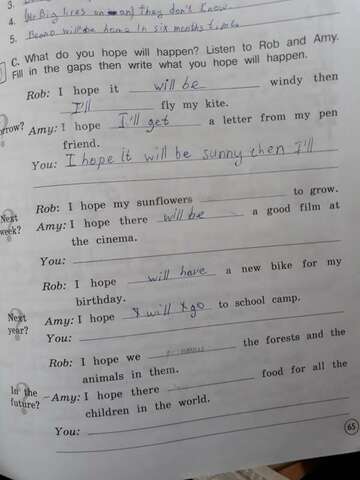 3.
4. Big lives on and they don't know
5. will be home in six months time
C. What do you hope will happen? Listen to Rob and Amy.
Fill in the gaps then write what you hope will happen.
Rob: I hope it will be windy then
I'll fly my kite.
Amy: I hope I'll get a letter from my pen
friend.
You: I hope it will be sunny then I'll
Next week?
Rob: I hope my sunflowers to grow.
Amy: I hope there will be a good film at
the cinema.
You:
Rob: I hope will have a new bike for my
birthday.
Next year?
Amy: I hope will go to school camp.
You:
Rob: I hope we the forests and the
animals in them.
In the future?
Amy: I hope there food for all the
children in the world.
You:
65